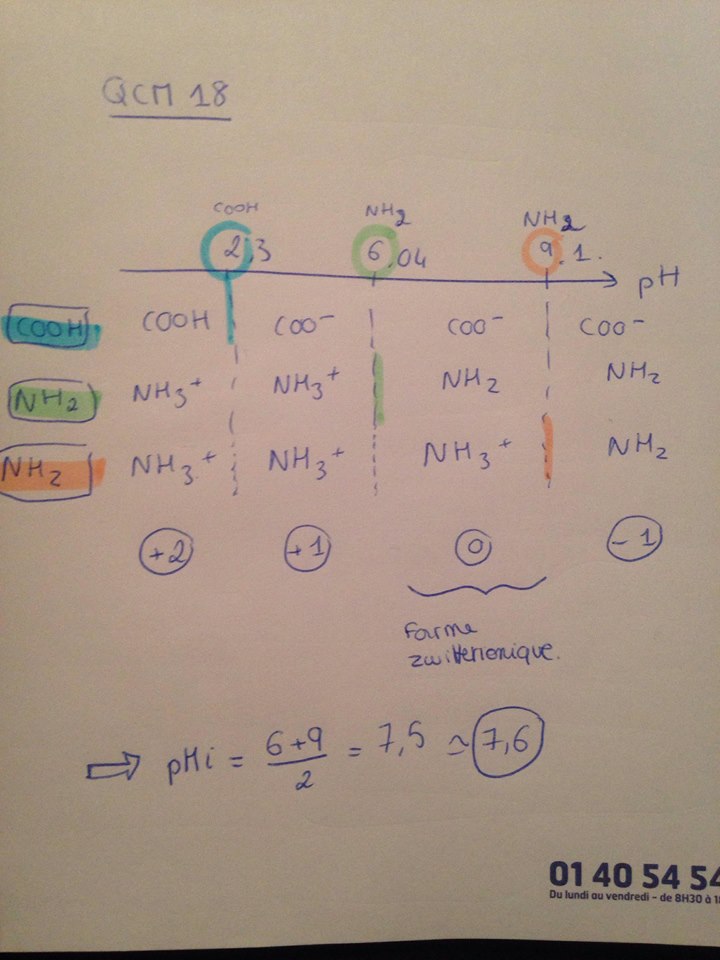 QCM 18
COOH NH₂ NH₂
2,3 6,04 9,1. pH
COOH COOH COO⁻ COO⁻ COO⁻
NH₂ NH₃⁺ NH₃⁺ NH₂ NH₂
NH₂ NH₃⁺ NH₃⁺ NH₃⁺ NH₂
+2 +1 0 -1
Forme
zwitterionique.
⇒ pHi = (6+9)/2 = 7,5 ≃ 7,6
01 40 54 54
Du lundi au vendredi - de 8H30 à 1